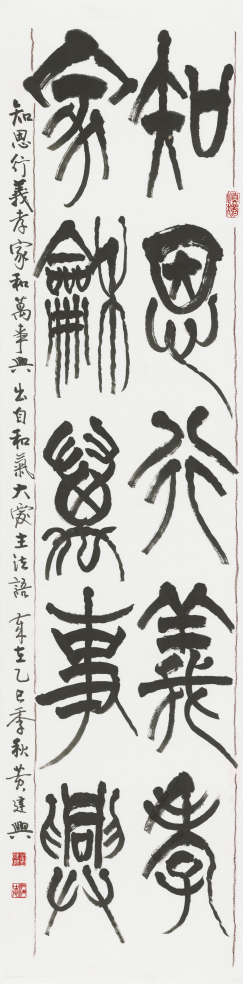 知恩行義孝
家龢萬事興
知恩行義孝家和萬事興出自和氣大愛主法語歲在乙巳季秋黄建興